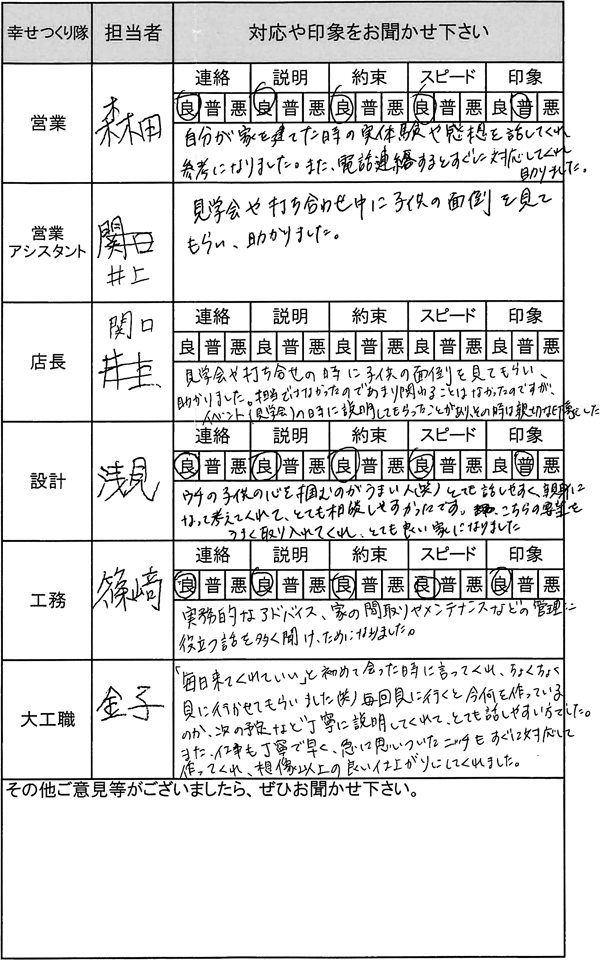 幸せつくり隊 担当者 対応や印象をお聞かせ下さい
営業 森田
連絡 説明 約束 スピード 印象
良 普 悪 良 普 悪 良 普 悪 良 普 悪 良 普 悪
自分が家を建てた時の実体験や感想を話してくれ
参考になりました。また、電話連絡するとすぐに対応してくれ
助りました。
営業
アシスタント
関口
井上
見学会や打ち合わせ中に子供の面倒を見て
もらい、助かりました。
店長
関口
連絡 説明 約束 スピード 印象
良 普 悪 良 普 悪 良 普 悪 良 普 悪 良 普 悪
見学会や打ち合せの時に子供の面倒を見てもらい、
助かりました。担当ではなかったのであまり関わることはなかったのですが、
イベント(見学会)の時に説明してもらったことがあり、その時は親切な印象でした
設計 浅見
連絡 説明 約束 スピード 印象
良 普 悪 良 普 悪 良 普 悪 良 普 悪 良 普 悪
ウチの子供の心を掴むのがうまい人(笑)とても話しやすく、親身に
なって考えてくれて、とても相談しやすかったです。こちらの要望も
うまく取り入れてくれ、とても良い家になりました
工務 篠﨑
連絡 説明 約束 スピード 印象
良 普 悪 良 普 悪 良 普 悪 良 普 悪 良 普 悪
実務的なアドバイス、家の間取りやメンテナンスなどの管理に
役立つ話を多く聞け、ためになりました。
大工職 金子
「毎日来てくれていい」と初めて会った時に言ってくれ、ちょくちょく
見に行かせてもらいました(笑)毎回見に行くと今何を作っている
のか、次の予定など丁寧に説明してくれて、とても話しやすい方でした。
また、仕事も丁寧で早く、急に思いついたニッチもすぐに対応して
作ってくれ、想像以上の良い仕上がりにしてくれました。
その他ご意見等がございましたら、ぜひお聞かせ下さい。